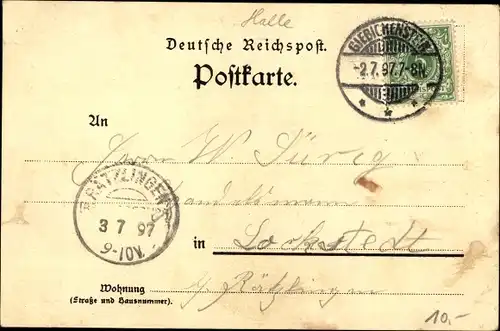 Halle
Deutsche Reichspost.
Postkarte.
GIEBICHENSTEIN
-2.7.97.7-8N
* * *
An
Herrn W. Sürig
RÄTZLINGEN
3 7 97
9-10V.
in Lockstedt
Wohnung
(Straße und Hausnummer).
b/ Rätzlingen
10,-